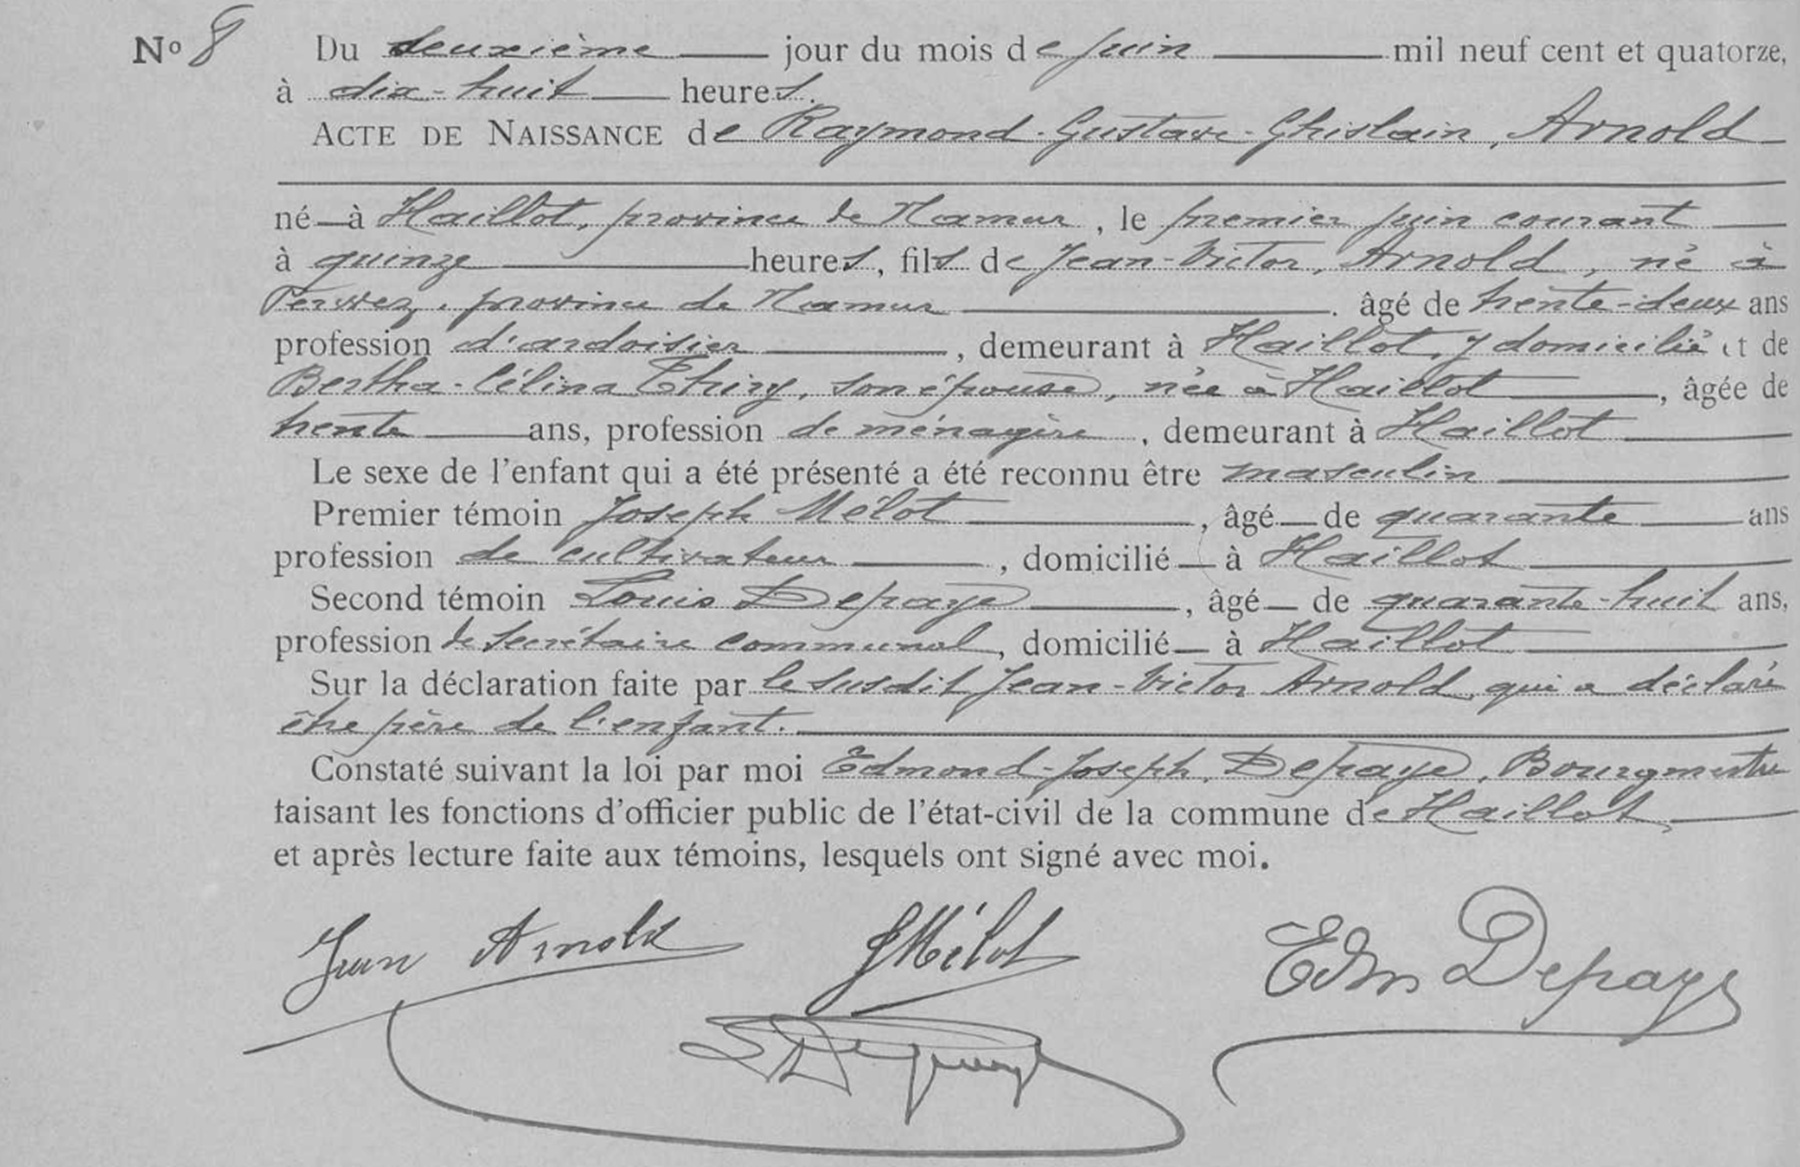 No 8 Du deuxième jour du mois de juin mil neuf cent et quatorze,
à dix-huit heures.
ACTE DE NAISSANCE de Raymond-Gustave-Ghislain, Arnold
né à Haillot, province de Namur, le premier juin courant
à quinze heures, fils de Jean-Victor, Arnold, né à
province de Namur. âgé de trente-deux ans
profession d'ardoisier, demeurant à Haillot, y domicilié et de
Bertha-Célina Thiry, son épouse, née à Haillot, âgée de
trente ans, profession de ménagère, demeurant à Haillot
Le sexe de l'enfant qui a été présenté a été reconnu être masculin
Premier témoin Joseph Mélot, âgé de quarante ans
profession de cultivateur, domicilié à Haillot
Second témoin Louis Depaye, âgé de quarante-huit ans,
profession de secrétaire communal, domicilié à Haillot
Sur la déclaration faite par le susdit Jean-Victor Arnold, qui a déclaré
être père de l'enfant.
Constaté suivant la loi par moi Edmond-Joseph, Depaye, Bourgmestre
faisant les fonctions d'officier public de l'état-civil de la commune de Haillot,
et après lecture faite aux témoins, lesquels ont signé avec moi.
Jean Arnold J Mélot Edm Depaye
L Depaye